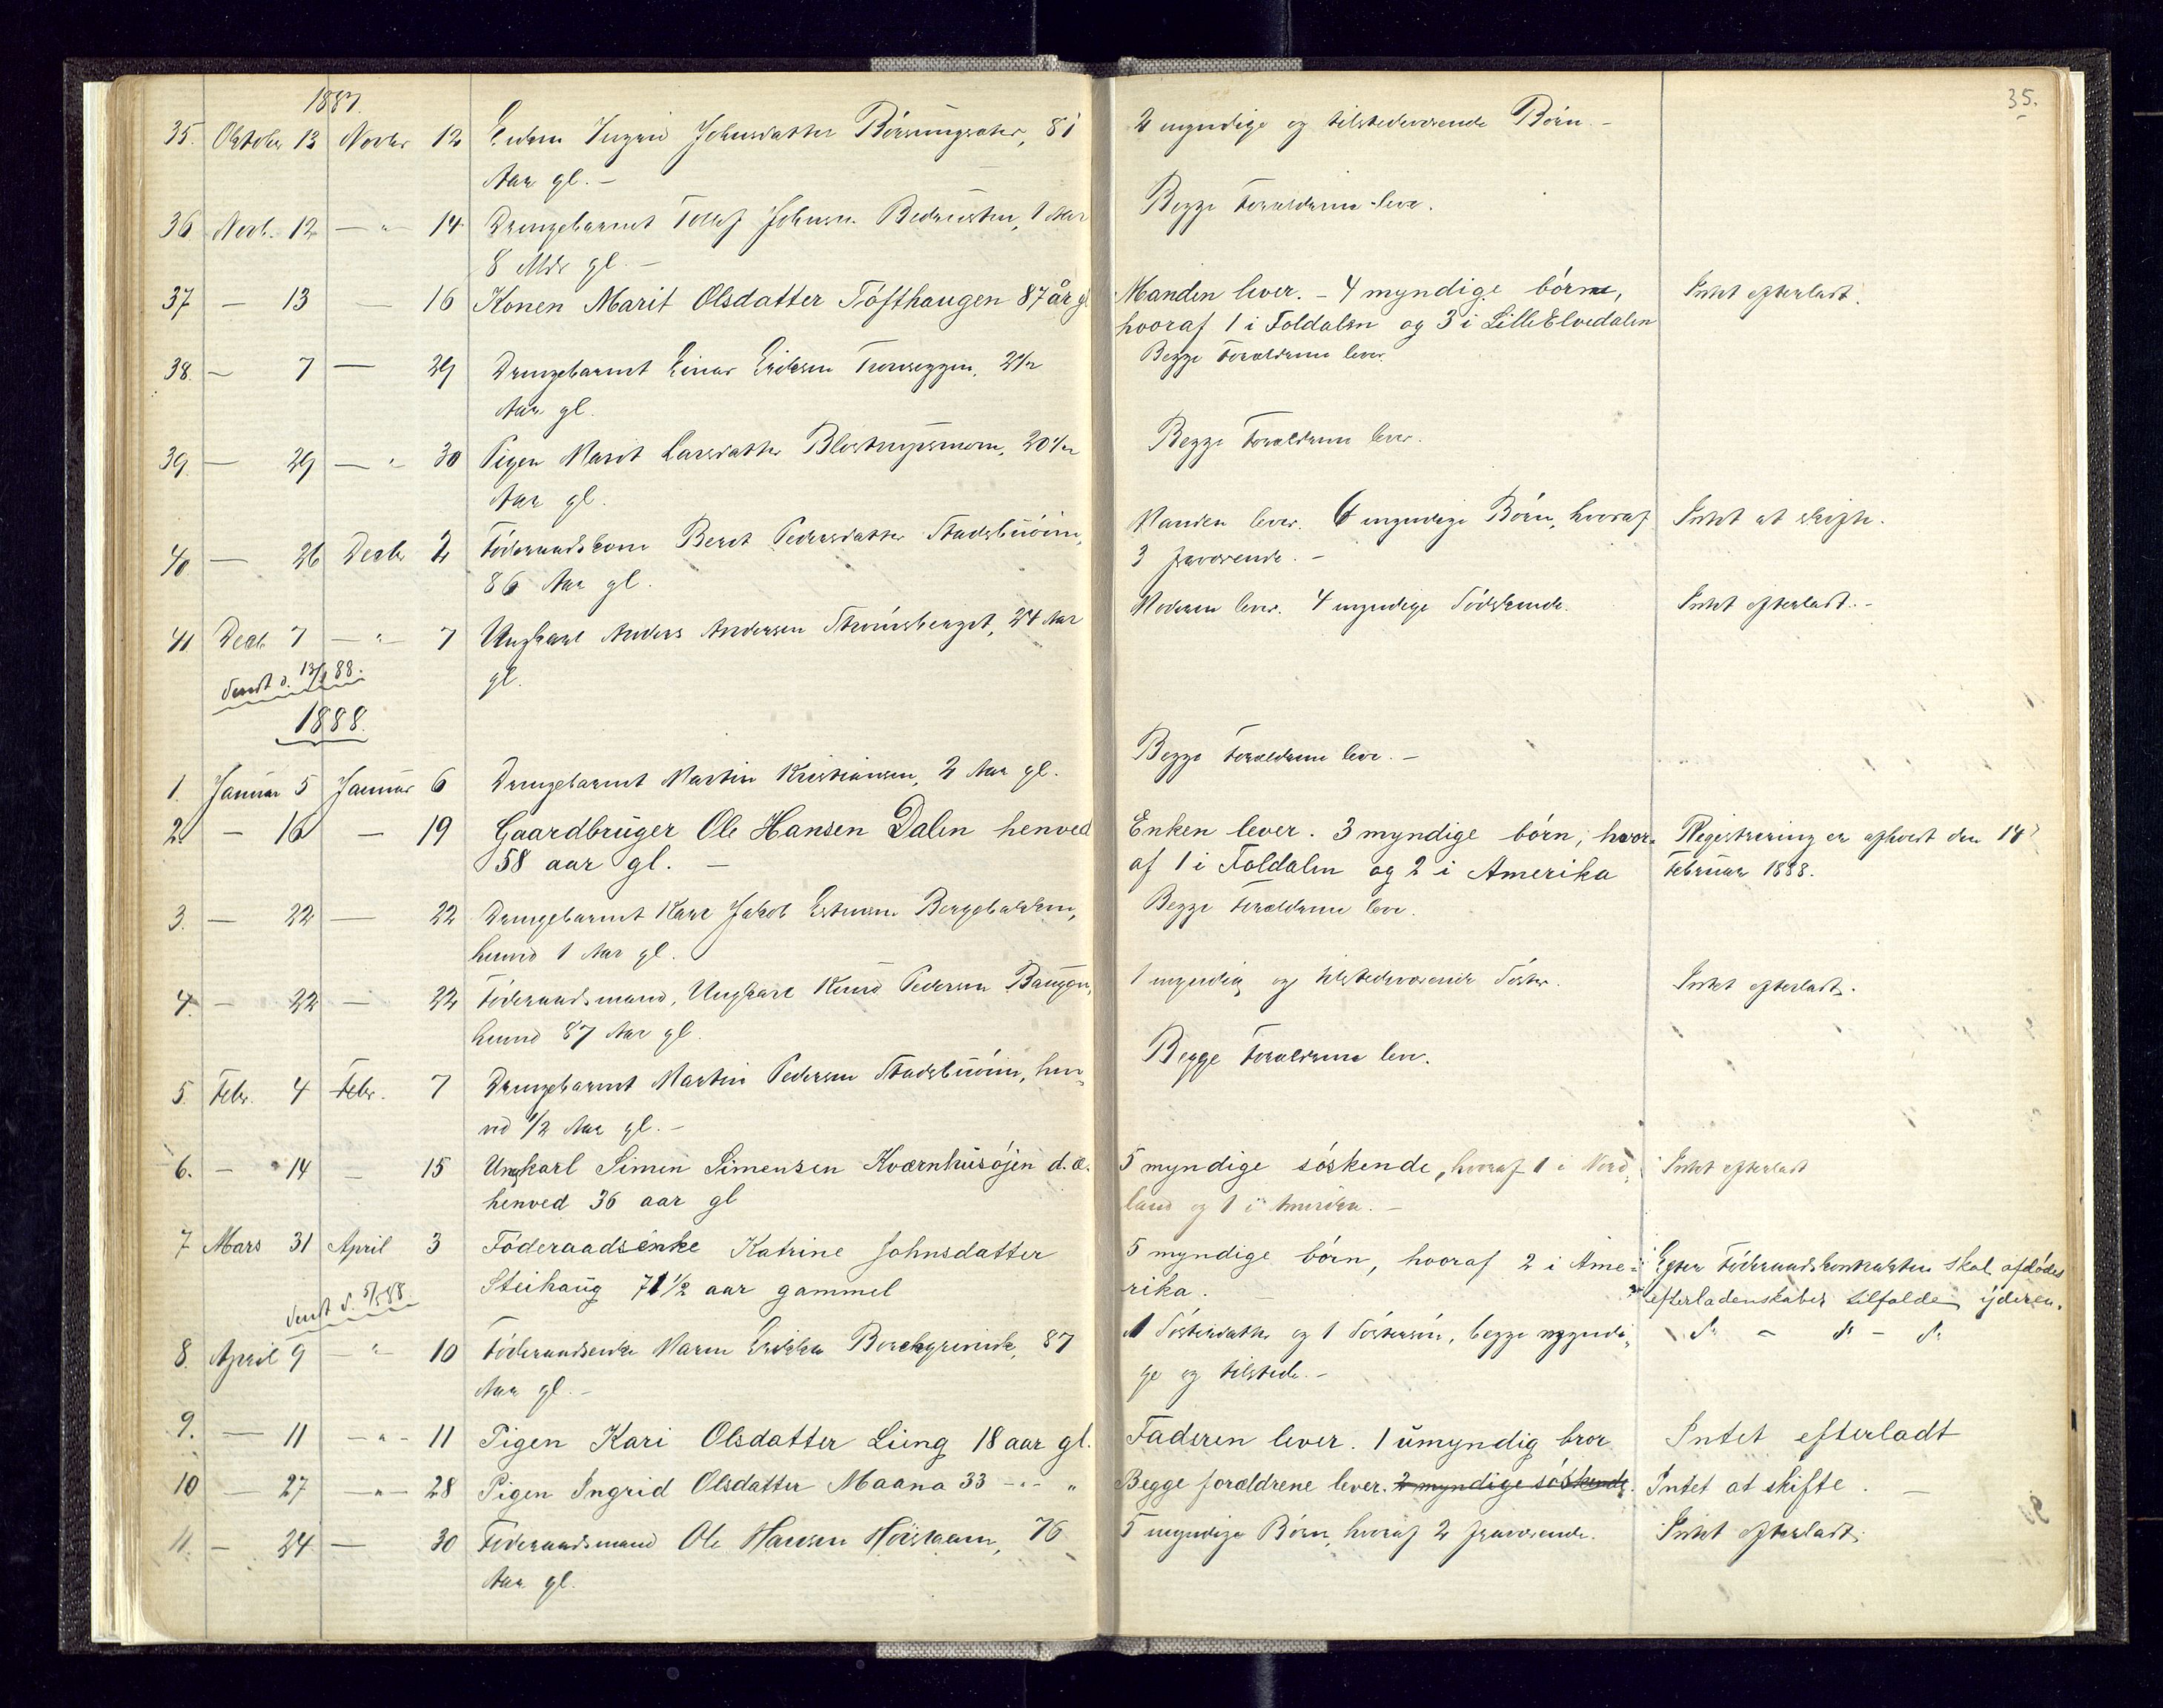 35.
1887.
35. Oktober 13 Novbr 12 Enken Ingrid Johnsdatter 81 2 myndige og tilstedeværende Børn. -
Aar gl. -
36 Novb. 12 — " — 14 Drengebarnet Johnsen 1 Aar Begge Forældrene leve.
8 Mdr gl. -
37 — 13 — 16 Konen Marit Olsdatter Tøfthaugen 87 år gl Manden lever. - 4 myndige børn, Intet efterladt.
hvoraf 1 i Foldalen og 3 i LilleElvedalen
38. — 7 — 29 Drengebarnet Einar Eriksen Tronseggen, 2 1/2 Begge Forældrene lever.
Aar gl.
39 — 29 — " — 30 Pigen Marit Larsdatter 20 1/2 Begge Forældrene lever.
Aar gl.
40 — 26 Decbr 2 Føderaadskone Berit Pedersdatter Stadsbuøien, Manden lever. 6 myndige Børn, hvoraf Intet at skifte.
86 Aar gl. 3 fraværende. -
41 Decbr 7 — " — 7 Ungkarl Anders Andersen Strømsberget, 24 Aar Moderen lever. 4 myndige Sødskende. Intet efterladt. -
gl.
Sendt d. 13/1 88.
1888.
1. Januar 5 Januar 6 Drengebarnet Martin Kristiansen, 2 Aar gl. Begge Forældrene leve. -
2. — 16 — 19 Gaardbruger Ole Hansen Dalen henved Enken lever. 3 myndige børn, hvor- Registrering er afholdt den 14
58 aar gl. — af 1 i Foldalen og 2 i Amerika Februar 1888.
3. — 22 — 22 Drengebarnet Karl Jakob Estensen Bergebakken, Begge Forældrene leve.
henved 1 Aar gl.
4. — 22 — 22 Føderaadsmand, Ungkarl Knud Pedersen Baugen, 1 myndig og tilstedeværende Søster. Intet efterladt.
henved 87 Aar gl.
5. Febr. 4 Febr. 7 Drengebarnet Martin Pedersen Stadsbuøien, hen- Begge Forældrene leve.
ved 1/2 Aar gl. -
6. — 14 — 15 Ungkarl Simen Simensen Kværnhusøjen d. æ. 5 myndige søskende, hvoraf 1 i Nord- Intet efterladt
henved 36 aar gl land og 1 i Amerika. -
7 Mars 31 April 3 Føderaadsenke Katrine Johnsdatter 5 myndige børn, hvoraf 2 i Ame- Efter Føderaadskontrakten skal afdødes
Steihaug 71 1/2 aar gammel rika. — efterladenskaber tilfalde yderen.
Sendt d. 5/5 88.
8. April 9 — " — 10 Føderaadsenke Maren 87 1 Søsterdatter og 1 Søstersøn, begge myndi- do - do - do
Aar gl. - ge og tilstede. -
9. — 11 — " — 11 Pigen Kari Olsdatter Lieng 18 aar gl. Faderen lever. 1 umyndig bror Intet efterladt
10 — 27 — " — 28 Pigen Ingrid Olsdatter Maana 33 - " - " Begge forældrene lever. 2 myndige søskende. Intet at skifte. —
11. — 24 — 30 Føderaadsmand Ole Hansen 76 5 myndige Børn, hvoraf 2 fraværende. Intet efterladt.
Aar gl.